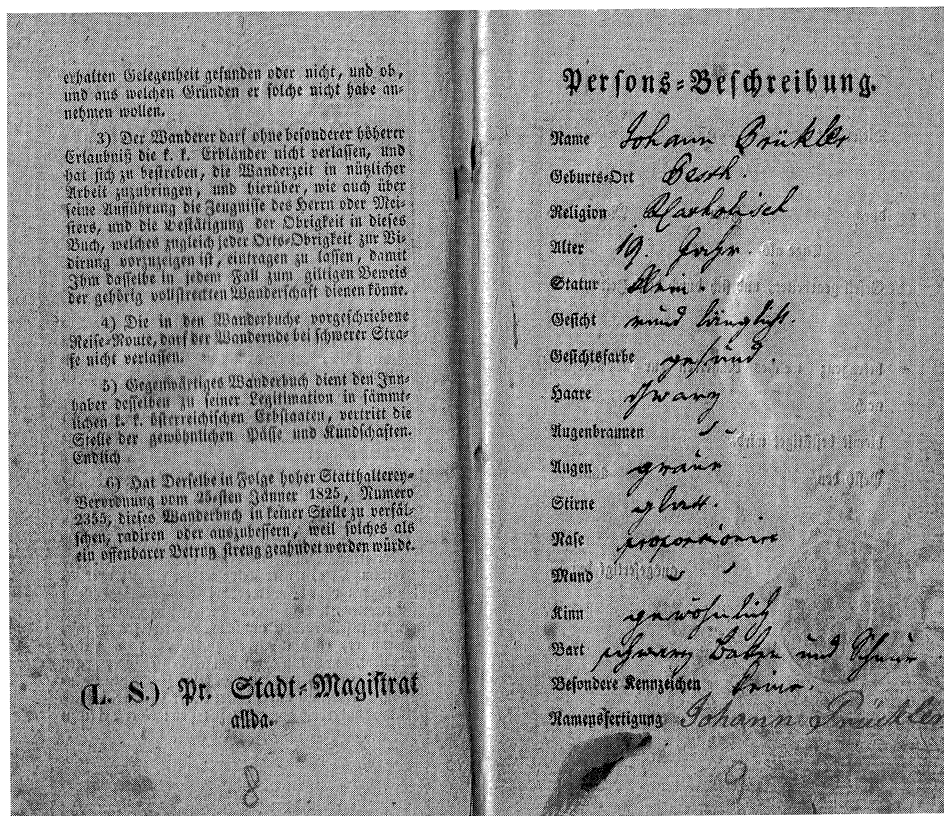 erhalten Gelegenheit gefunden oder nicht, und ob,
und aus welchen Gründen er solche nicht habe an-
nehmen wollen.
3) Der Wanderer darf ohne besonderer höherer
Erlaubniß die k. k. Erbländer nicht verlassen, und
hat sich zu bestreben, die Wanderzeit in nützlicher
Arbeit zuzubringen, und hierüber, wie auch über
seine Aufführung die Zeugnisse des Herrn oder Mei-
sters, und die Bestätigung der Obrigkeit in dieses
Buch, welches zugleich jeder Orts-Obrigkeit zur Vi-
dirung vorzuzeigen ist, eintragen zu lassen, damit
Ihm dasselbe in jedem Fall zum giltigen Beweis
der gehörig vollstreckten Wanderschaft dienen könne.
4) Die in den Wanderbuche vorgeschriebene
Reise-Route, darf der Wandernde bei schwerer Stra-
fe nicht verlassen.
5) Gegenwärtiges Wanderbuch dient den Inn-
haber desselben zu seiner Legitimation in sämmt-
lichen k. k. österreichischen Erbstaaten, vertritt die
Stelle der gewöhnlichen Pässe und Kundschaften.
Endlich
6) Hat Derselbe in Folge hoher Statthalterey-
Verordnung vom 25-sten Jänner 1825, Numero
2355, dieses Wanderbuch in keiner Stelle zu verfäl-
schen, radiren oder auszubessern, weil solches als
ein offenbarer Betrug streng geahndet werden würde.
(L. S.) Pr. Stadt-Magistrat
allda.
8
Persons-Beschreibung.
Name Johann
Geburts-Ort Pesth.
Religion Katholisch
Alter 19. Jahr.
Statur klein.
Gesicht rund länglicht.
Gesichtsfarbe gesund.
Haare schwarz
Augenbraunen " "
Augen graue
Stirne glatt.
Nase proportionirt
Mund " "
Kinn gewöhnlich
Bart schwarz Baken und
Besondere Kennzeichen keine.
Namensfertigung Johann
9